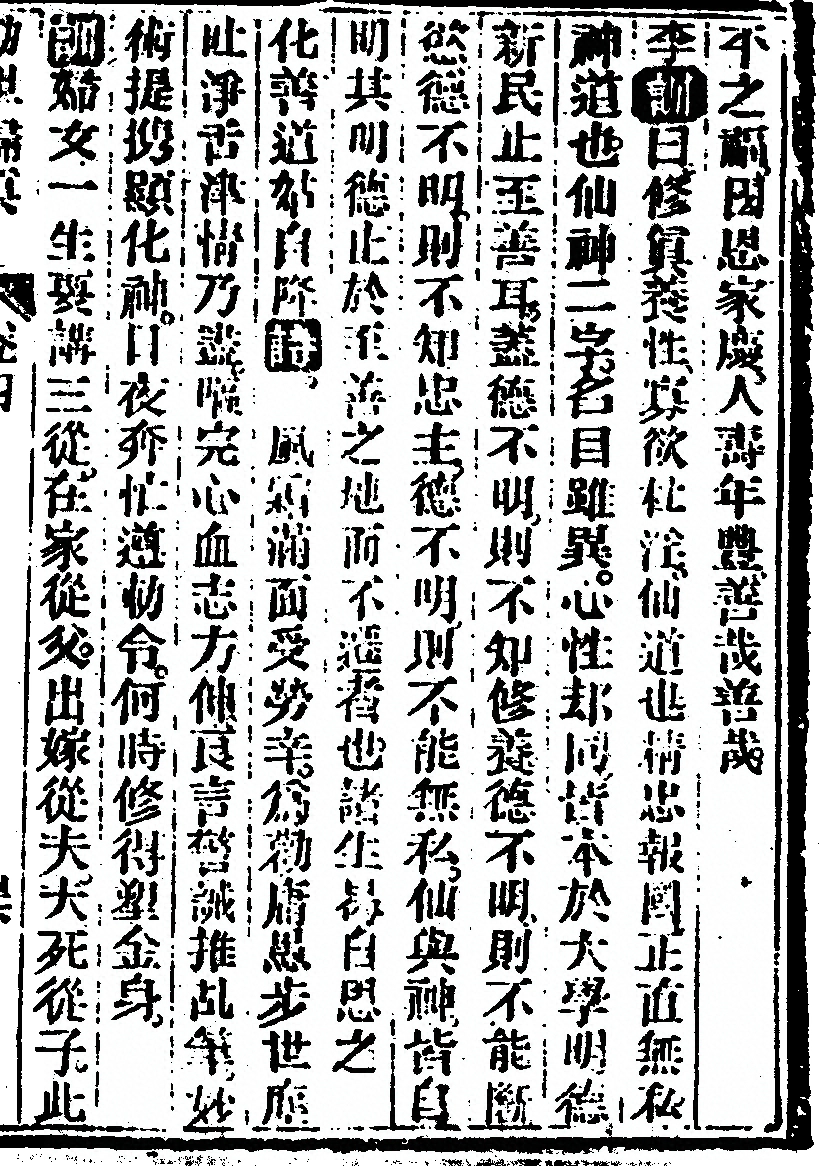 不之嗣因恩家慶人壽年豐善哉善哉
李訓曰修眞養性寡欲杜淫仙道也精忠報國正直無私
神道也仙神二字名目雖異心性却同皆本於大學明德
新民止至善耳蓋德不明則不知修養德不明則不能斷
慾德不明則不知忠主德不明則不能無私仙與神皆自
明其明德止於至善之地而不遷者也諸生曷自思之
化善道姑自降詩　風霜滿面受勞辛爲勸庸愚步世塵
吐淨舌津情乃盡嘔完心血志方伸良言警誡推乩筆妙
術提撕顯化神日夜奔忙遵勅令何時修得塑金身
訓婦女一生要講三從在家從父出嫁從夫夫死從子此